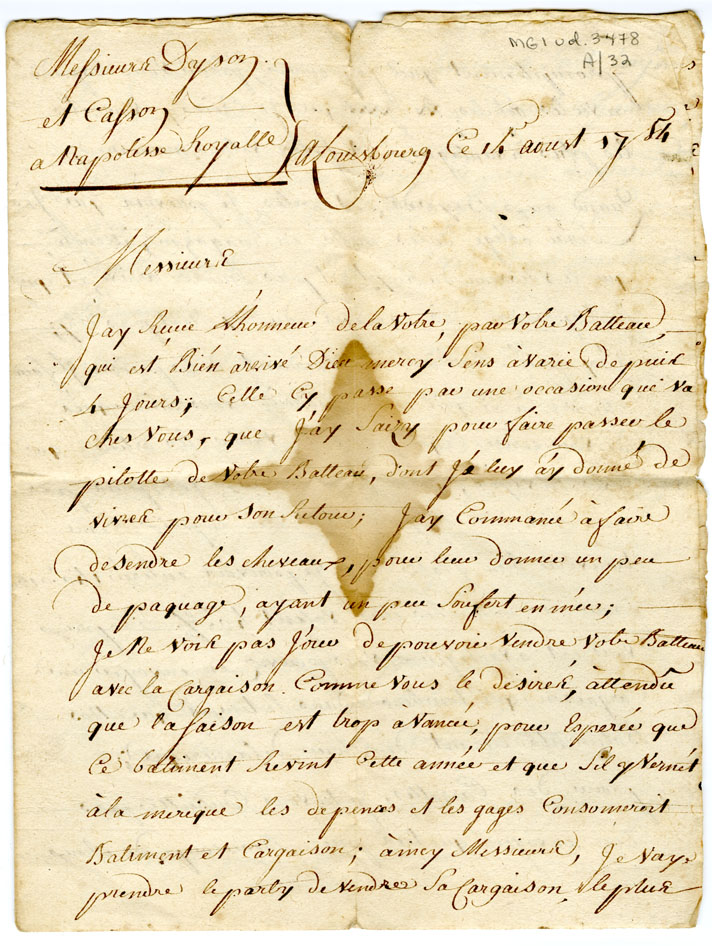 MG1 vol. 3478
A/32
Messieurs Dyson
et Casson
a Napolisse Royalle
A Louisbourg Ce 14 aoust 1754
Messieurs
Jay Reçue L'honneur de la Votre, par Votre Batteau,
qui est Bién àrrivé Dieu mercy Sens àvarie depuis
4 Jours; Celle Cy passe par une occasion que va
ches Vous, que J'ay Saizy pour faire passer le
pilotte de Votre Batteau, dont Jé luy áy donné de
vivres pour Son Retour; Jay Commancé à faire
desendre les cheveaux, pour leur donner un peu
de paquage, ayant un peu Soufert en mer;
Je Ne Vois pas Jour de pouvoir Vendre Votre Batteau
avec la Cargaison. Comme Vous le desirés, àttendu
que la saison est trop àvancé, pour Esperér que
Ce batiment Revint Cette année et que Sil yVernét
à la merique les depences et les gages Consomeroit
Batiment et Cargaison; àincy Messieurs, Je Vay
prendre le party de Vendre Sa Cargaison, le plus